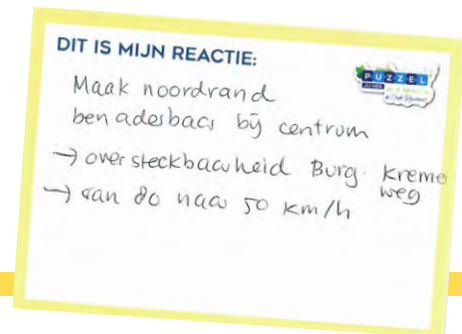 DIT IS MIJN REACTIE:
PUZZEL
Maak noordrand
benaderbaar bij centrum
→ oversteekbaarheid Burg. Kreme
weg
→ van 80 naar 50 km/h